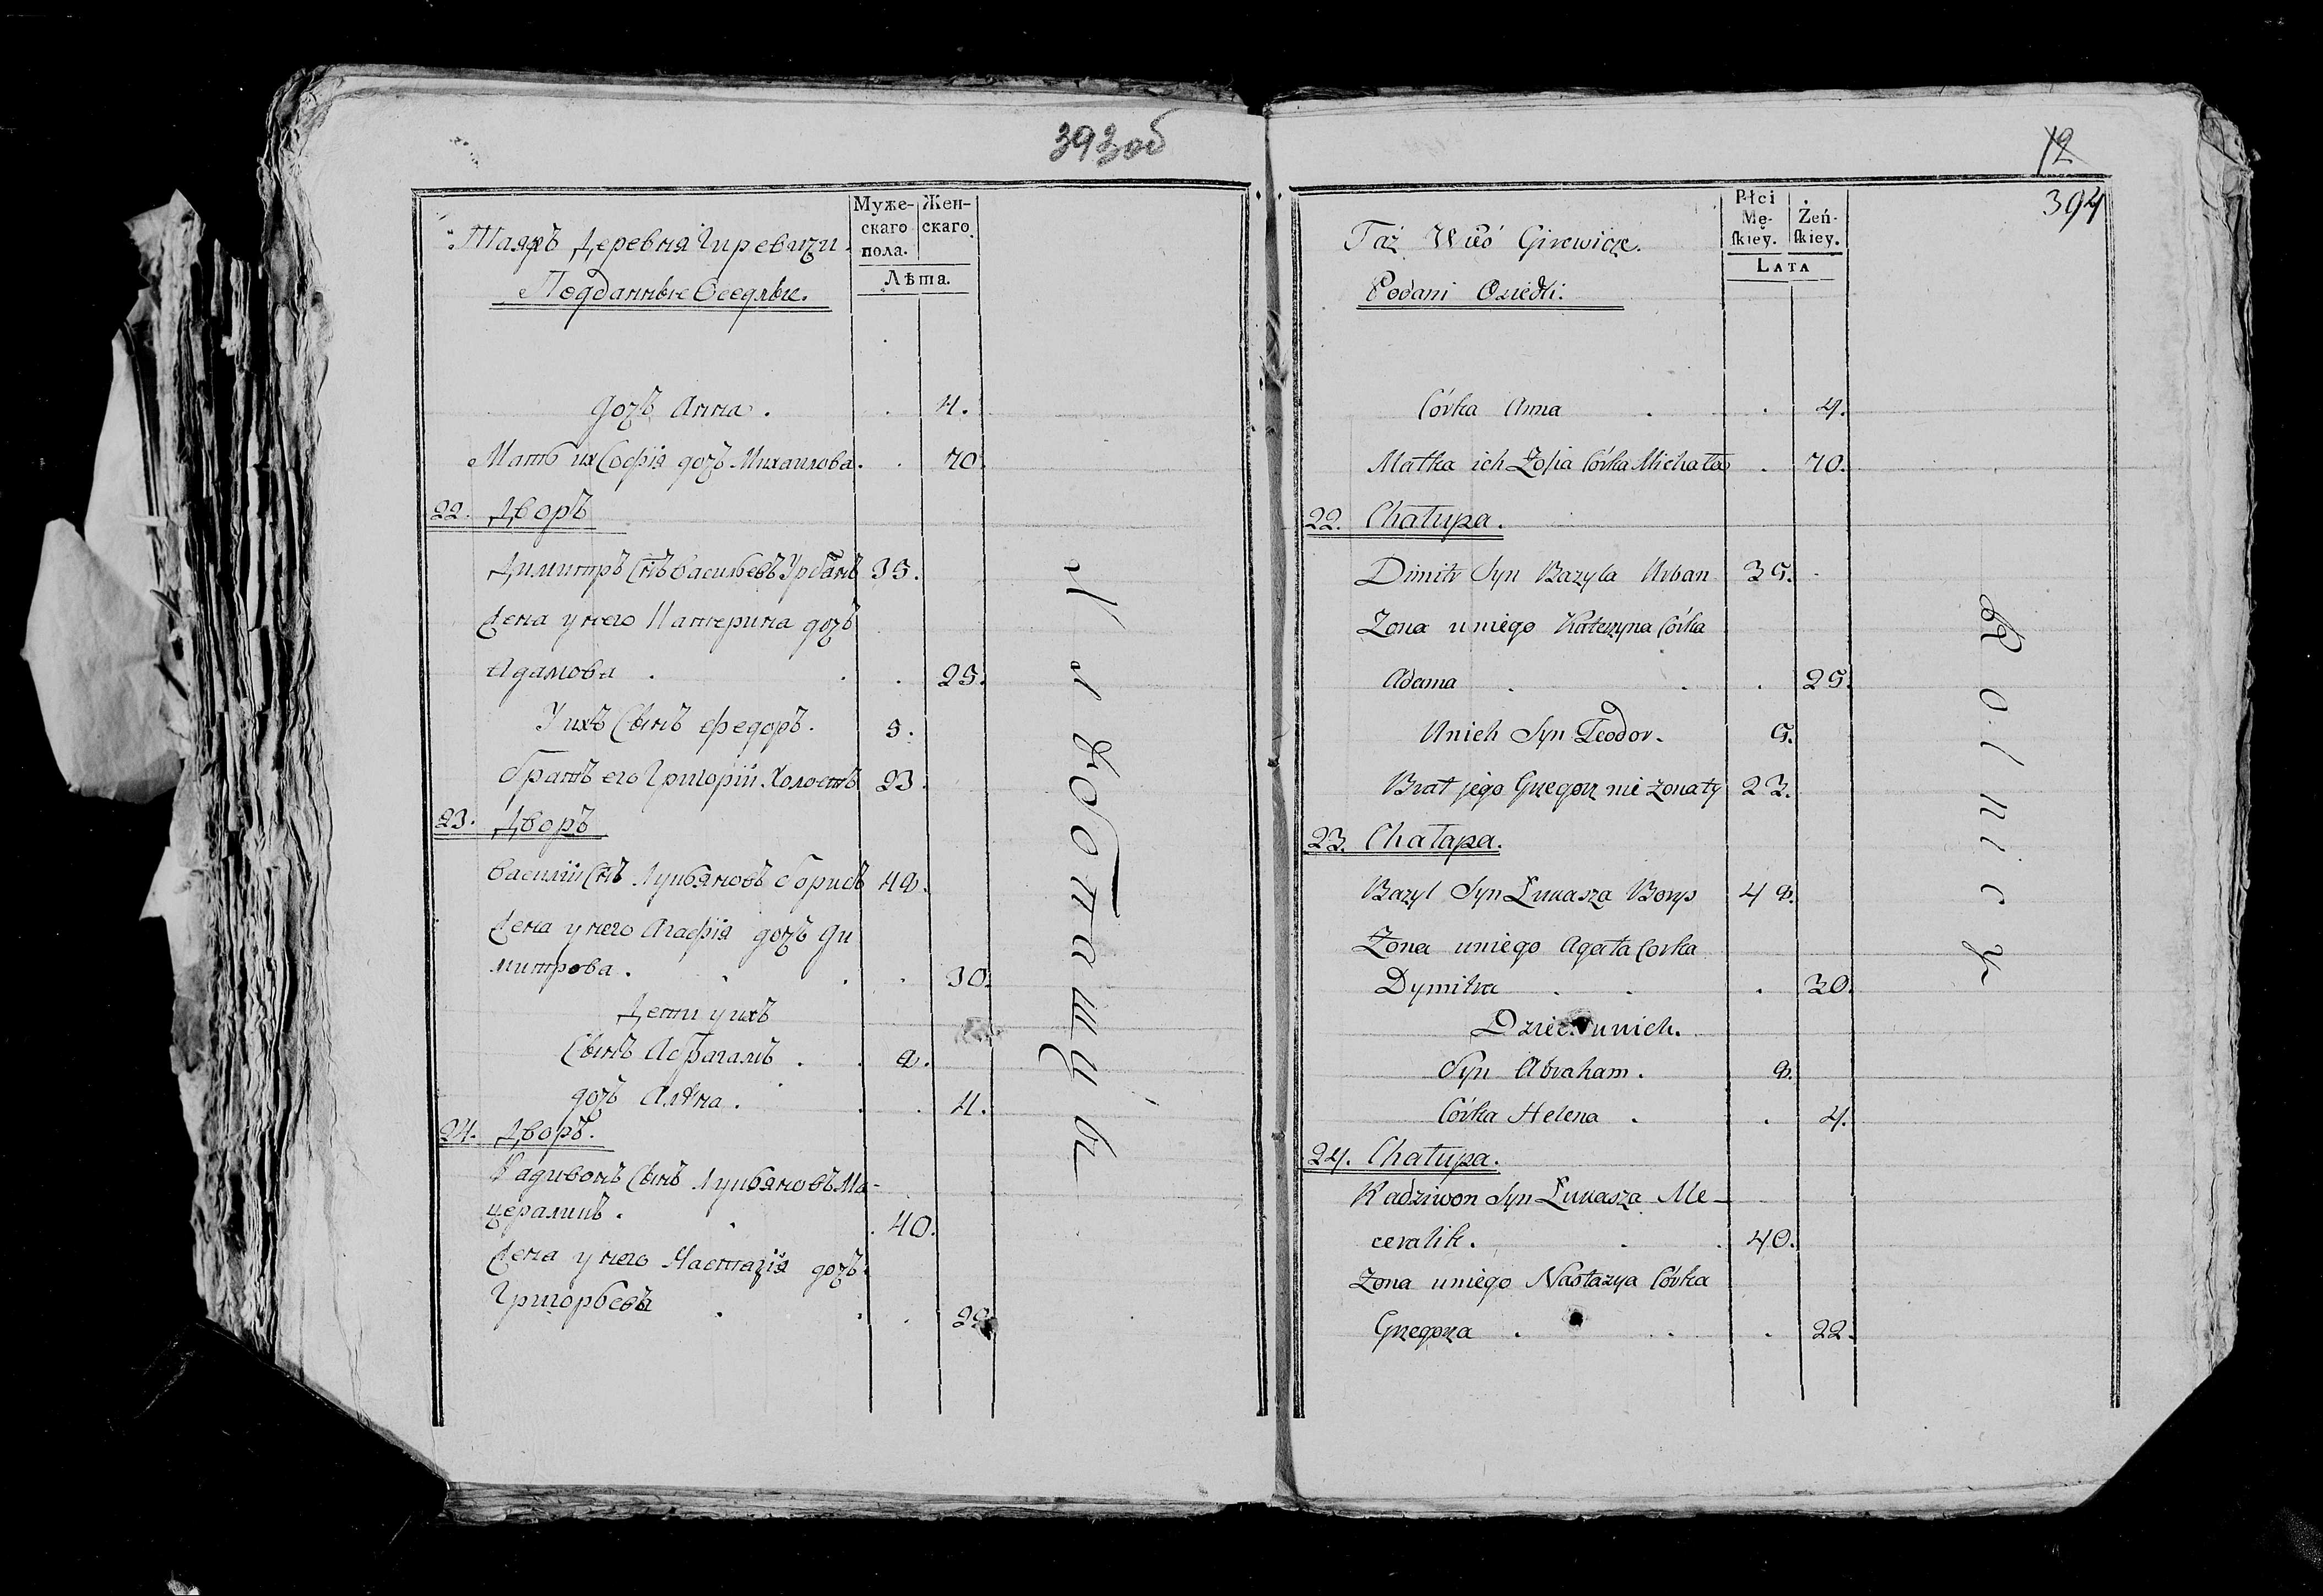 393об
Муже-
скаго
пола.
Жен-
скаго.
Лѣта.
Таяжъ Деревня Гиревичи.
Подданные Оседлые.
дочь Анна . . 4.
Мать ихъ Софія дочь Михаилова. . 70.
22. Дворъ
Димитръ Снъ Васильевъ Урбанъ 35.
Жена у него Катерина дочь
Адамова . . . 25.
У ихъ Сынъ Федоръ. 5.
братъ его Григорій. Холостъ 23.
23. Дворъ
Василій Снъ Лукьяновъ Борисъ 48.
Жена у него Агафія дочь Ди
митрова . . . . 30.
Дети у ихъ
Сынъ Абрагамъ . . 8.
дочь Алѣна . . . 4.
24. Дворъ.
Радивонъ Сынъ Лукьяновъ Ме-
цераликъ . . . 40.
Жена у него Настазія дочь
Григорьева . . . 22.
12
394
Płci
Mę-
skiey.
Żeń-
skiey.
LATA
Taż Wieś Girewicze.
Podani Osiedli.
Córka Anna . . 4.
Matka ich Zofia Córka Michała . 70.
22. Chałupa.
Dimitr Syn Bazyla Urban 35.
Zona uniego Katerzyna Córka
Adama . . . 25.
Unich Syn Teodor. 5.
Brat jego Grzegorz nie żonaty 23.
23. Chałapa.
Bazyl Syn Łukasza Borys 48.
Zona uniego Agata Corka
Dymitra . . . 30.
Dzieci unich.
Syn Abraham . 8.
Córka Helena . . 4.
24. Chałupa.
Radziwon Syn Łukasza Me-
ceralik. . . 40.
Zona uniego Nastazya Córka
Grzegorza . . . . 22.
Rolnicy